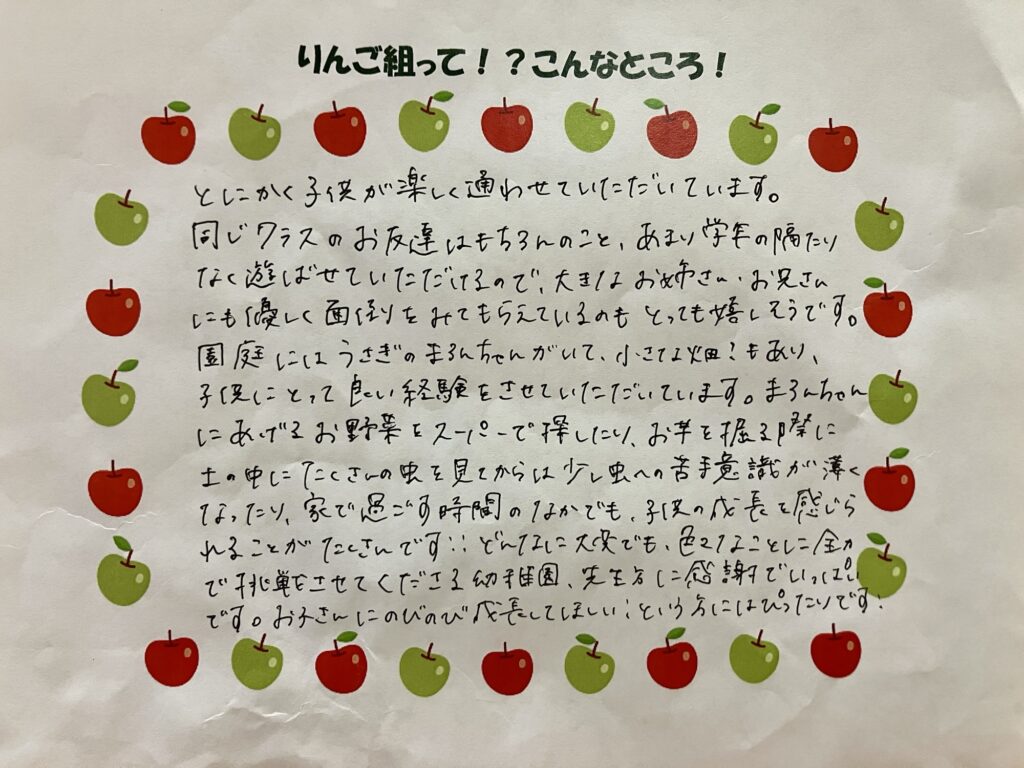 りんご組って！？こんなところ！
とにかく子供が楽しく通わせていただいています。
同じクラスのお友達はもちろんのこと、あまり学年の隔たり
なく遊ばせていただけるので、大きなお姉さん・お兄さん
にも優しく面倒をみてもらえているのもとっても嬉しそうです。
園庭にはうさぎのまろんちゃんがいて、小さな畑？もあり、
子供にとって良い経験をさせていただいています。まろんちゃん
にあげるお野菜をスーパーで探したり、お芋を掘る際に
土の中にたくさんの虫を見てからは少し虫への苦手意識が薄く
なったり、家で過ごす時間のなかでも、子供の成長を感じら
れることがたくさんです!! どんなに大変でも、色々なことに全力
で挑戦をさせてくださる幼稚園、先生方に感謝でいっぱい
です。お子さんにのびのび成長してほしい！という方にはぴったりです！